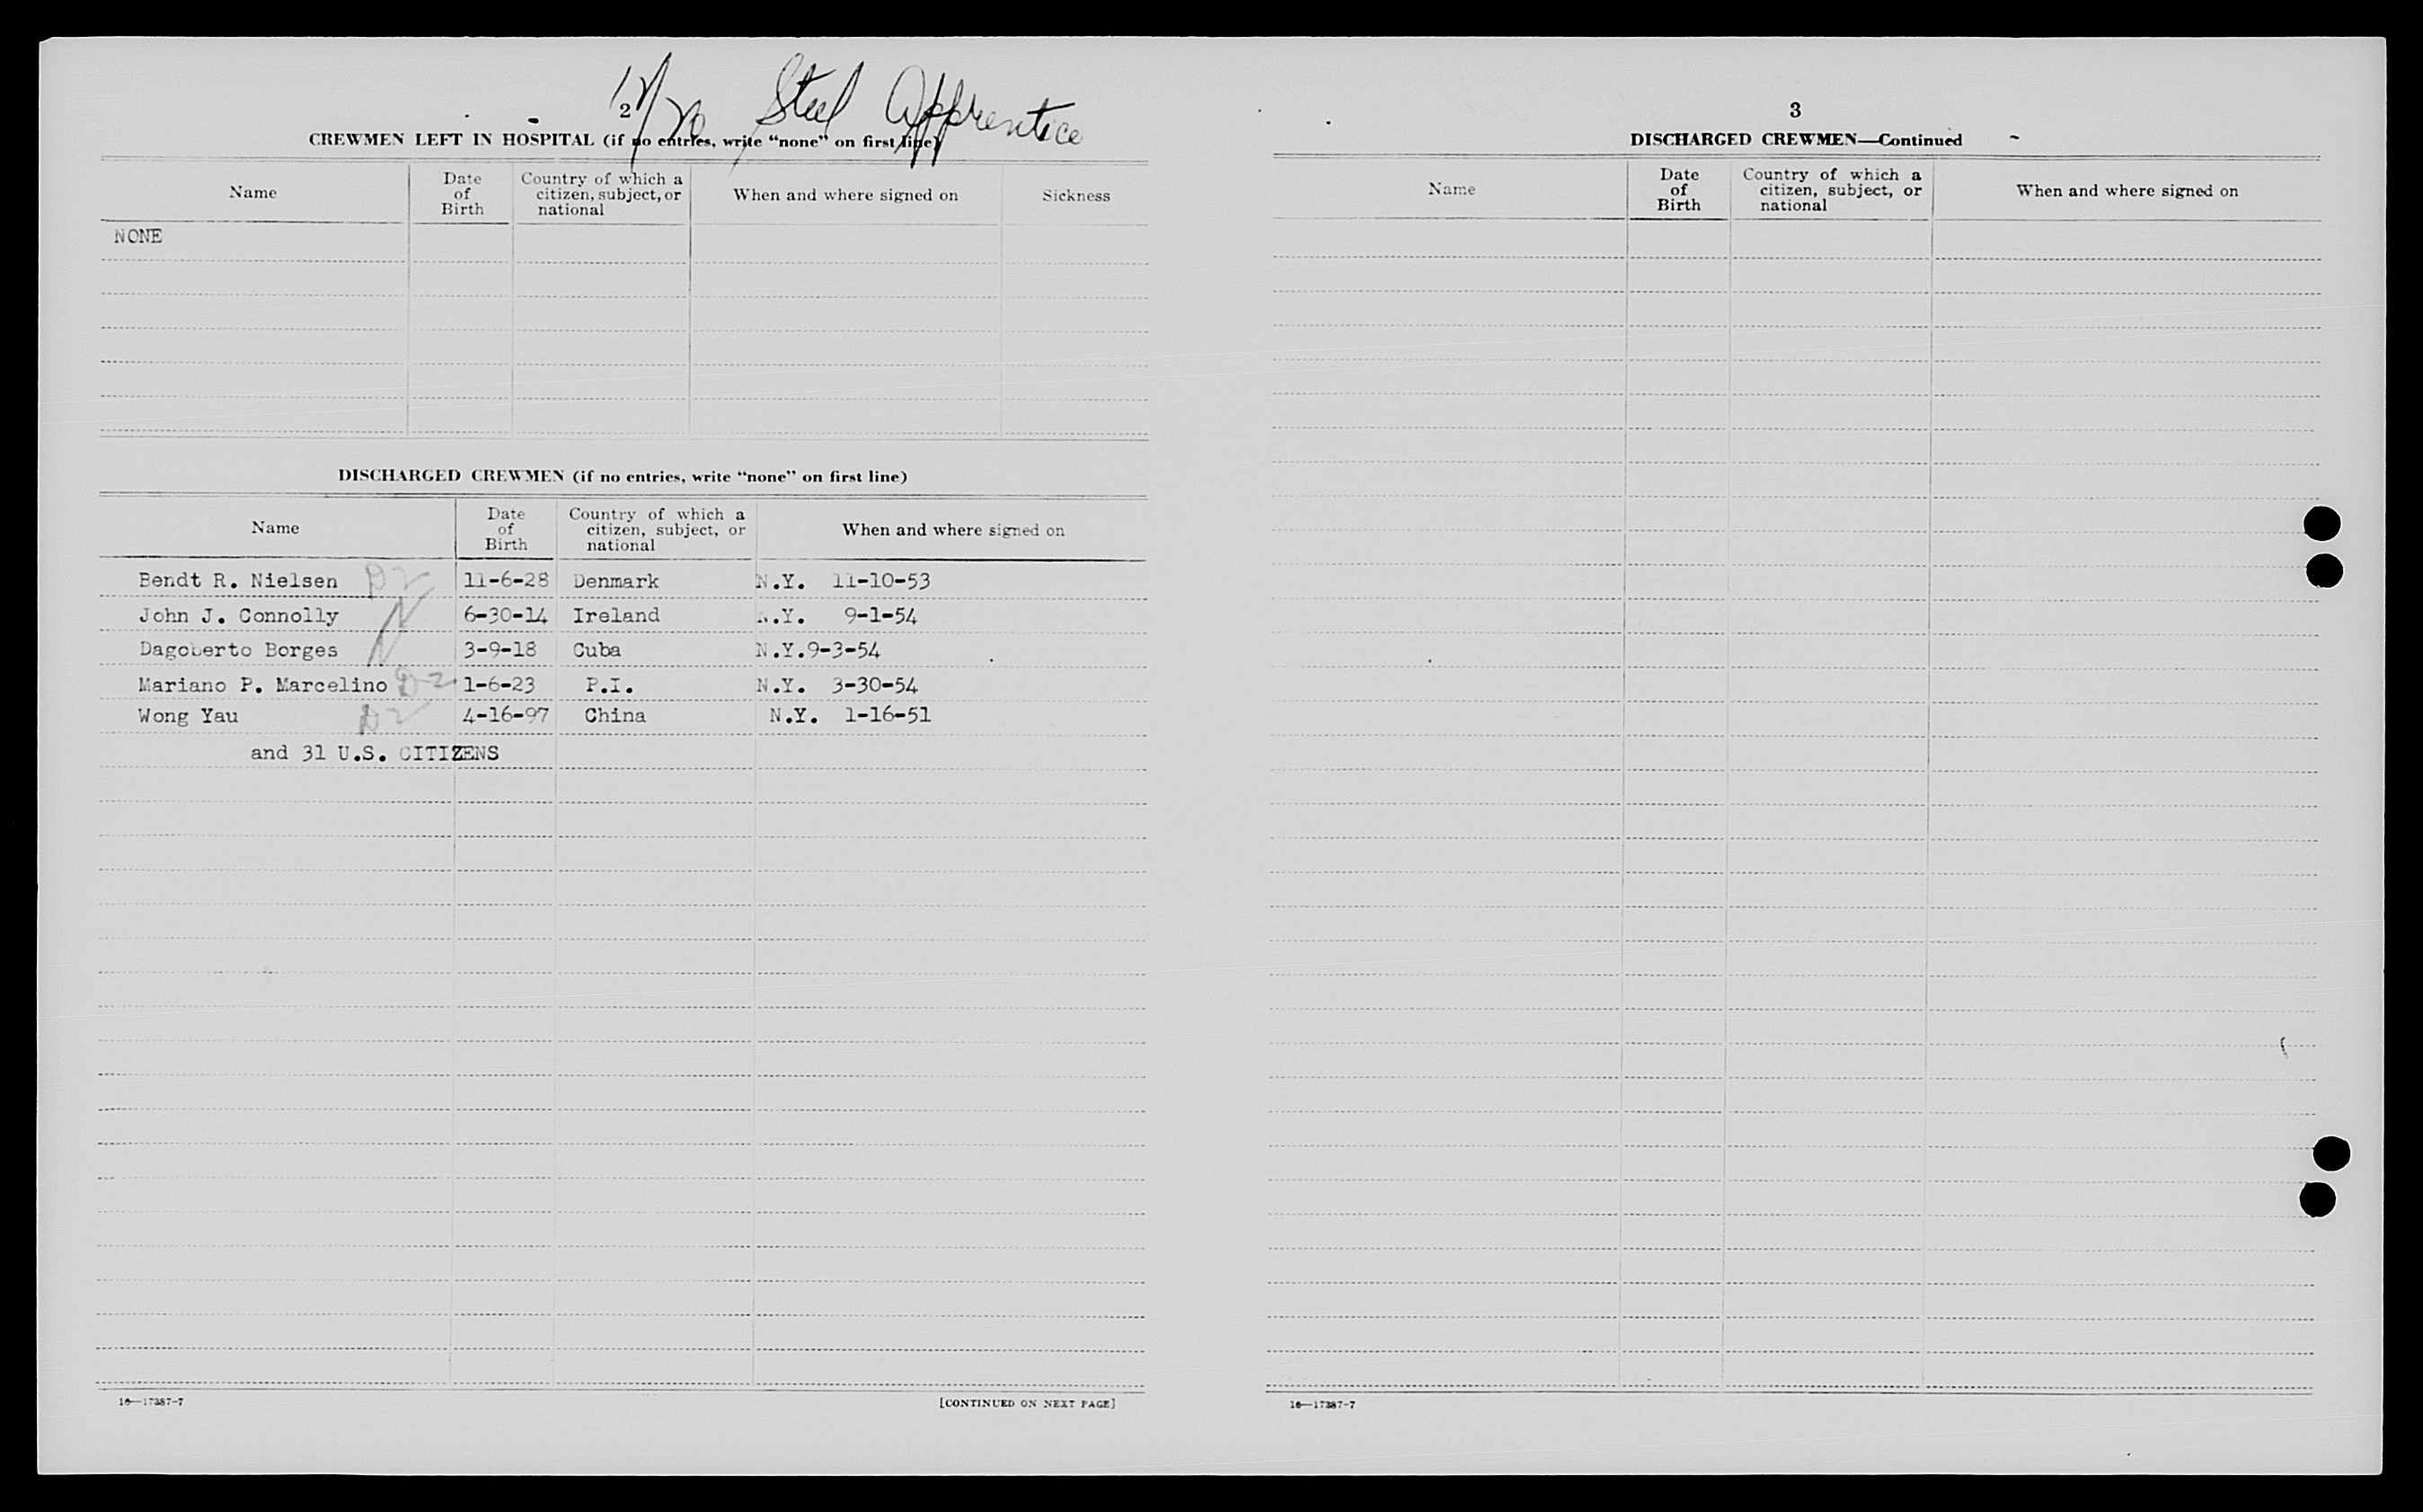 2
12/20 Steel Apprentice
CREWMEN LEFT IN HOSPITAL (if no entries, write “none” on first line)
Name Date of Birth Country of which a citizen, subject, or national When and where signed on Sickness
NONE
DISCHARGED CREWMEN (if no entries, write “none” on first line)
Name Date of Birth Country of which a citizen, subject, or national When and where signed on
Bendt R. Nielsen D2 11-6-28 Denmark N.Y. 11-10-53
John J. Connolly 6-30-14 Ireland N.Y. 9-1-54
Dagoberto Borges 3-9-18 Cuba N.Y.9-3-54
Mariano P. Marcelino D2 1-6-23 P.I. N.Y. 3-30-54
Wong Yau D2 4-16-97 China N.Y. 1-16-51
and 31 U.S. CITIZENS
16—17387-7 [CONTINUED ON NEXT PAGE]
3
DISCHARGED CREWMEN—Continued
Name Date of Birth Country of which a citizen, subject, or national When and where signed on
16—17387-7